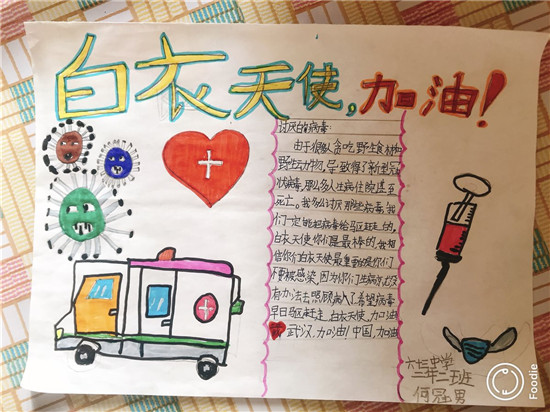 白衣天使,加油!
讨厌的病毒
由于很多人贪吃野生
野生动物,导致得了新型冠
状病毒,那么多人生病住院甚至
死亡。我多么讨厌那些病毒,我
们一定能把病毒给驱赶走的。
白衣天使你们是最棒的,我相
信你们白衣天使最重要的是你们
不要被感染,因为你们生病就没
有办法去照顾病人了。希望病毒
早日驱赶走,白衣天使,加油
武汉,加油!中国,加油
六十三中学
三年二班
何冠男
Foodie